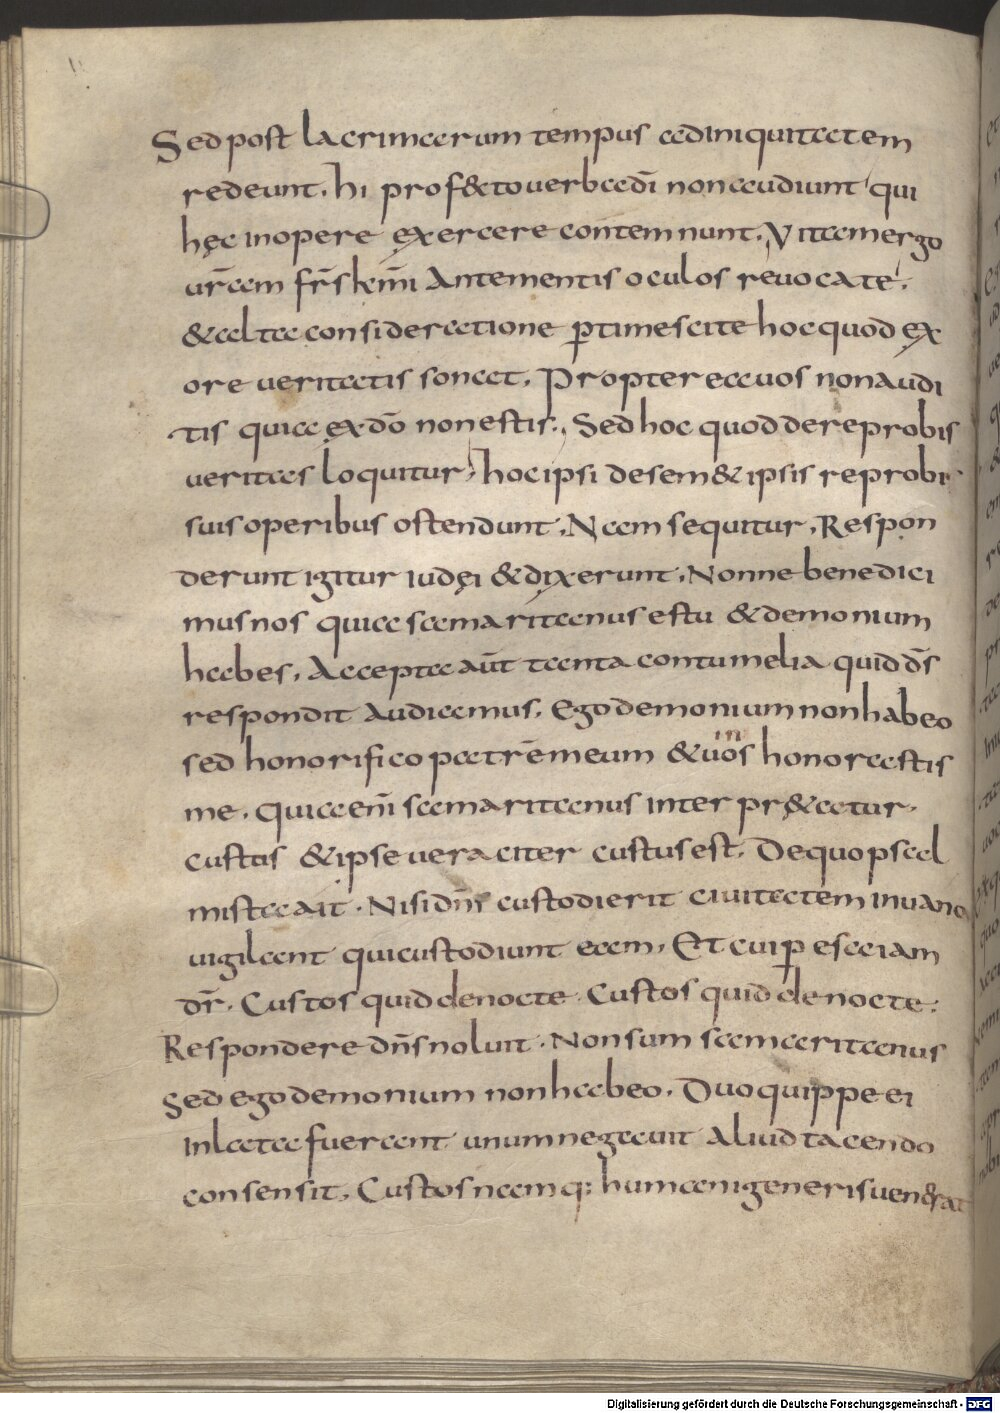 Sed post lacrimarum tempus ad iniquitatem
redeunt. hi prof&to uerba dī non audiunt qui
hęc in opere exercere contemnunt. Vitam ergo
ur̄am fr̄s km̄i Ante mentis oculos reuocate.
& alta consideratione ꝑtimescite hoc quod ex
ore ueritatis sonat. Propterea uos non audi
tis quia ex dō non estis. Sed hoc quod de reprobis
ueritas loquitur, hoc ipsi de sem&ipsis reprobi
suis operibus ostendunt. Nam sequitur. Respon
derunt igitur iudęi & dixerunt. Nonne benedici
mus nos quia samaritanus es tu & demonium
habes. Accepta aūt tanta contumelia quid dn̄s
respondit Audiamus. Ego demonium non habeo
sed honorifico patrē meum & uos honorastis
me. Quia enī samaritanus interpr&atur
custus & ipse ueraciter custus est. De quo psal
mista ait. Nisi dn̄s custodierit ciuitatem in uano
uigilant qui custodiunt eam. Et cui ꝑ esaiam
dr̄. Custos quid de nocte. Custos quid de nocte:
Respondere dn̄s noluit. Non sum samaritanus
Sed ego demonium non habeo. Duo quippe ei
inlata fuerant unum negauit Aliud tacendo
consensit. Custos namq: humani generis uen&rat